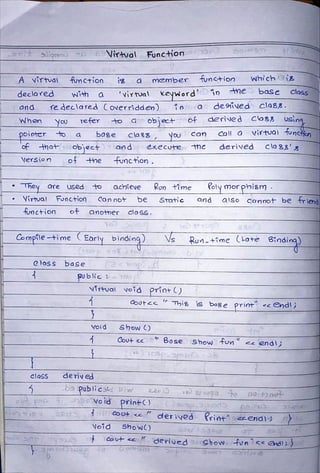 Virtual Function
A virtual function is a member function which is
declared with a 'virtual keyword' in the base class
and redeclared (overridden) in a derived class.
When you refer to a object of derived class using
pointer to a base class, you can call a virtual function
of that object and execute the derived class's
version of the function.
• They are used to achieve Run time Polymorphism.
• Virtual Function cannot be static and also cannot be friend
function of another class.
Compile-time (Early binding) Vs Run-time (Late Binding)
class base
{ public :
virtual void print()
{ cout<< " This is base print" << endl;
}
void show()
{ cout << " Base show fun" << endl;
}
}
class derived
{ public :
void print()
{ cout << " derived Print" << endl; }
void show()
{ cout << " derived show fun" << endl; }
}